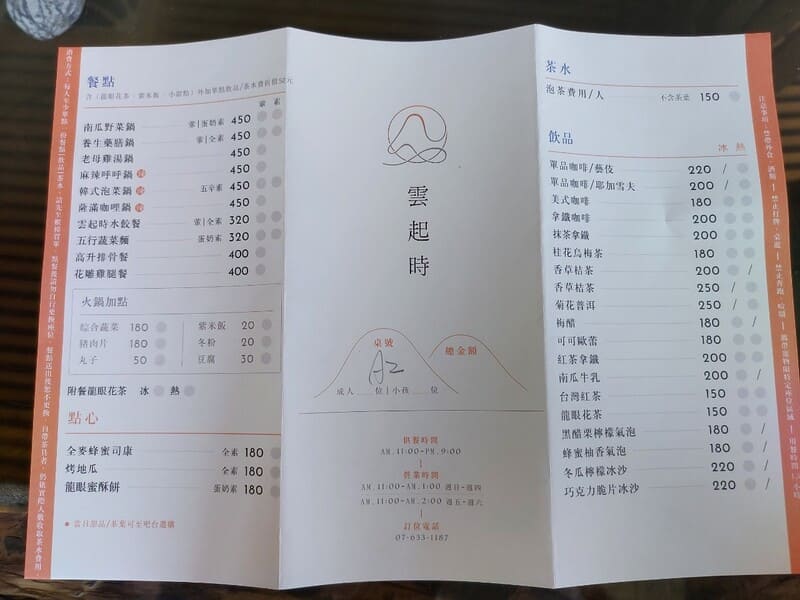 消費方式：每人至少單點一份餐點/飲品/茶水，請先至櫃檯買單
餐點
含（龍眼花茶、紫米飯、小甜點）外加單點飲品/茶水費折價50元
葷 素
南瓜野菜鍋 葷|蛋奶素 450
養生藥膳鍋 葷|全素 450
老母雞湯鍋 450
麻辣呼呼鍋 450
韓式泡菜鍋 五辛素 450
薩滿咖哩鍋 450
雲起時水餃餐 葷|全素 320
五行蔬菜麵 蛋奶素 320
高升排骨餐 400
花雕雞腿餐 400
火鍋加點
綜合蔬菜 180 紫米飯 20
豬肉片 180 冬粉 20
丸子 50 豆腐 30
附餐龍眼花茶 冰 熱
點心
全麥蜂蜜司康 全素 180
烤地瓜 全素 180
龍眼蜜酥餅 蛋奶素 180
● 當日甜品/茶葉可至吧台選購
雲起時
桌號
A2
總金額
成人 位|小孩 位
供餐時間
AM.11:00-PM.9:00
營業時間
AM.11:00-AM.1:00 週日-週四
AM.11:00-AM.2:00 週五-週六
訂位電話
07-633-1187
茶水
泡茶費用/人 不含茶葉 150
飲品
冰 熱
單品咖啡/藝伎 220 /
單品咖啡/耶加雪夫 200 /
美式咖啡 180
拿鐵咖啡 200
抹茶拿鐵 200
桂花烏梅茶 180
香草桔茶 200 /
香草桔茶 250 /
菊花普洱 250 /
梅醋 180 /
可可歐蕾 180
紅茶拿鐵 200
南瓜牛乳 200 /
台灣紅茶 150
龍眼花茶 150
黑醋栗檸檬氣泡 180 /
蜂蜜柚香氣泡 180 /
冬瓜檸檬冰沙 220 /
巧克力脆片冰沙 220 /
注意事項：禁帶外食、酒類|禁止打牌、桌遊|禁止奔跑、喧鬧